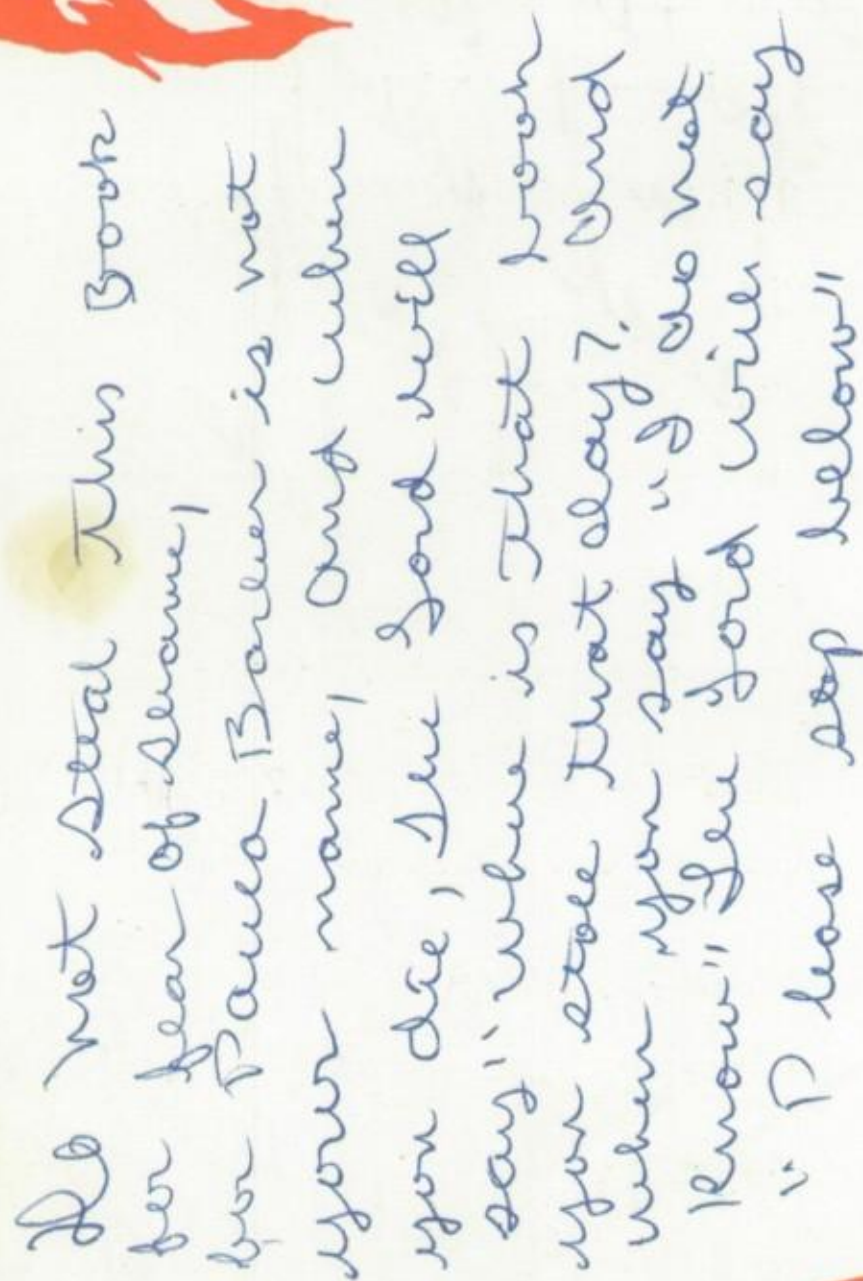 Do not steal This Book
for fear of shame,
for Paula Barber is not
your name, And when
you die, The Lord will
say "where is that book
you stole that day?, And
when you say "I do not
know" The Lord will say
"Please step below"